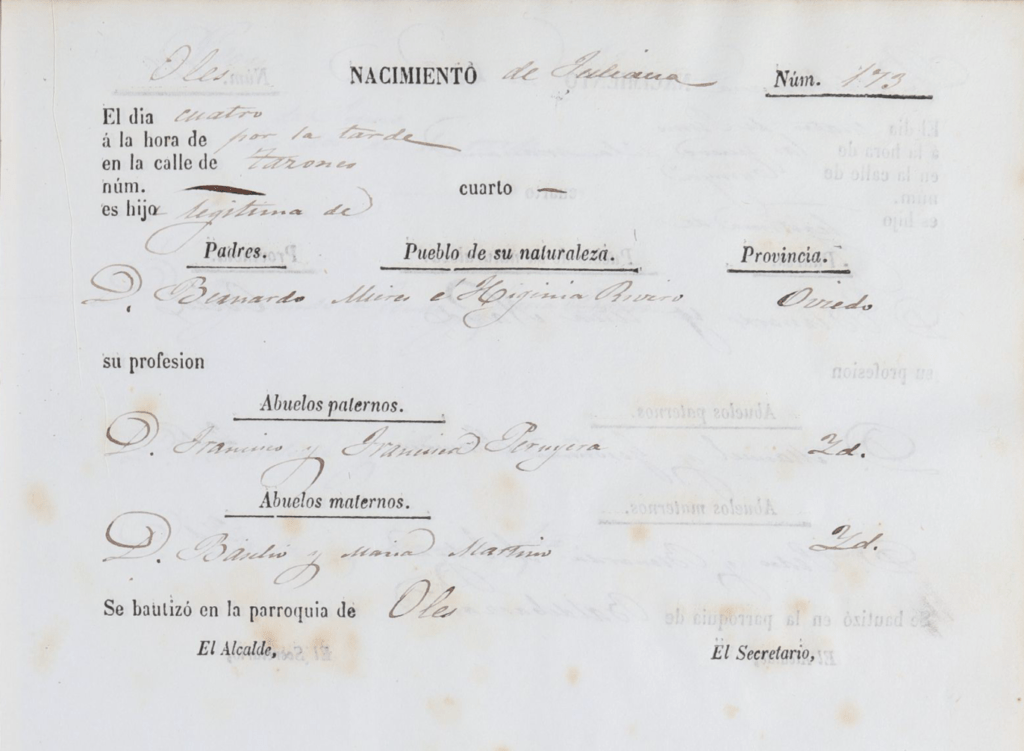 Oles NACIMIENTO de Juliana Núm. 173
El dia cuatro
á la hora de por la tarde
en la calle de Tarones
núm. — cuarto —
es hija legitima de
Padres. Pueblo de su naturaleza. Provincia.
D. Bernardo Mieres e Higinia Rivero Oviedo
su profesion
Abuelos paternos.
D. Francisco y Francisca Peruyera Yd.
Abuelos maternos.
D. Basilio y Maria Martino Yd.
Se bautizó en la parroquia de Oles
El Alcalde, El Secretario,